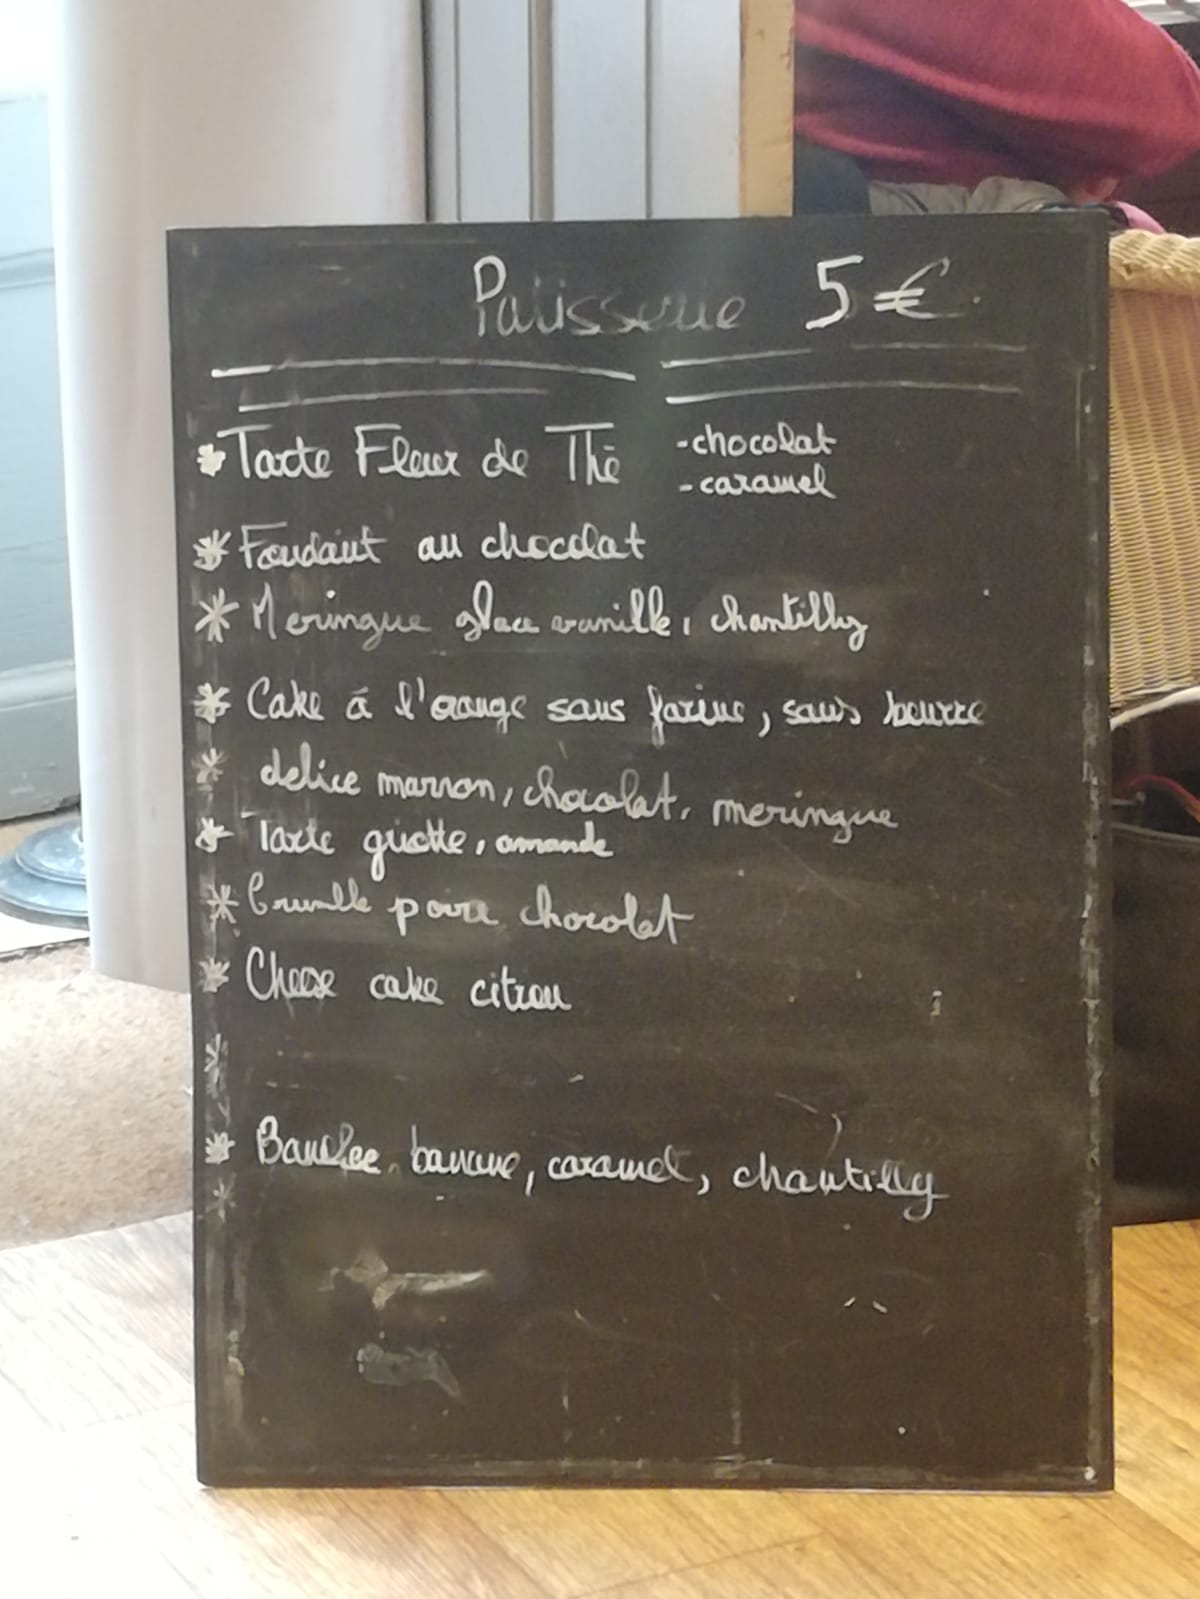 Patisserie 5€
* Tarte Fleur de Thé
- chocolat
- caramel
* Fondant au chocolat
* Meringue glace vanille, chantilly
* Cake à l'orange sans farine, sans beurre
* delice marron, chocolat, meringue
* Tarte griotte, amande
* Crumble poire chocolat
* Cheese cake citron
*
* Banofee banane, caramel, chantilly
*